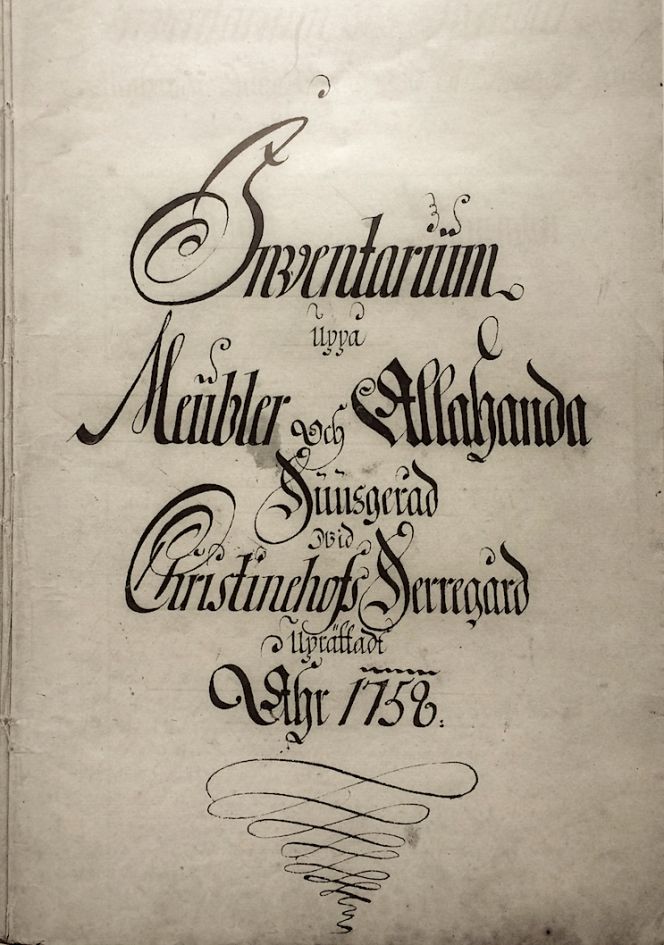 Inventarium
Uppå
Meübler Och Allahanda
Hüüsgeråd
wid
Christinehofs Herregård
Upräffadt
Ahr 1758.